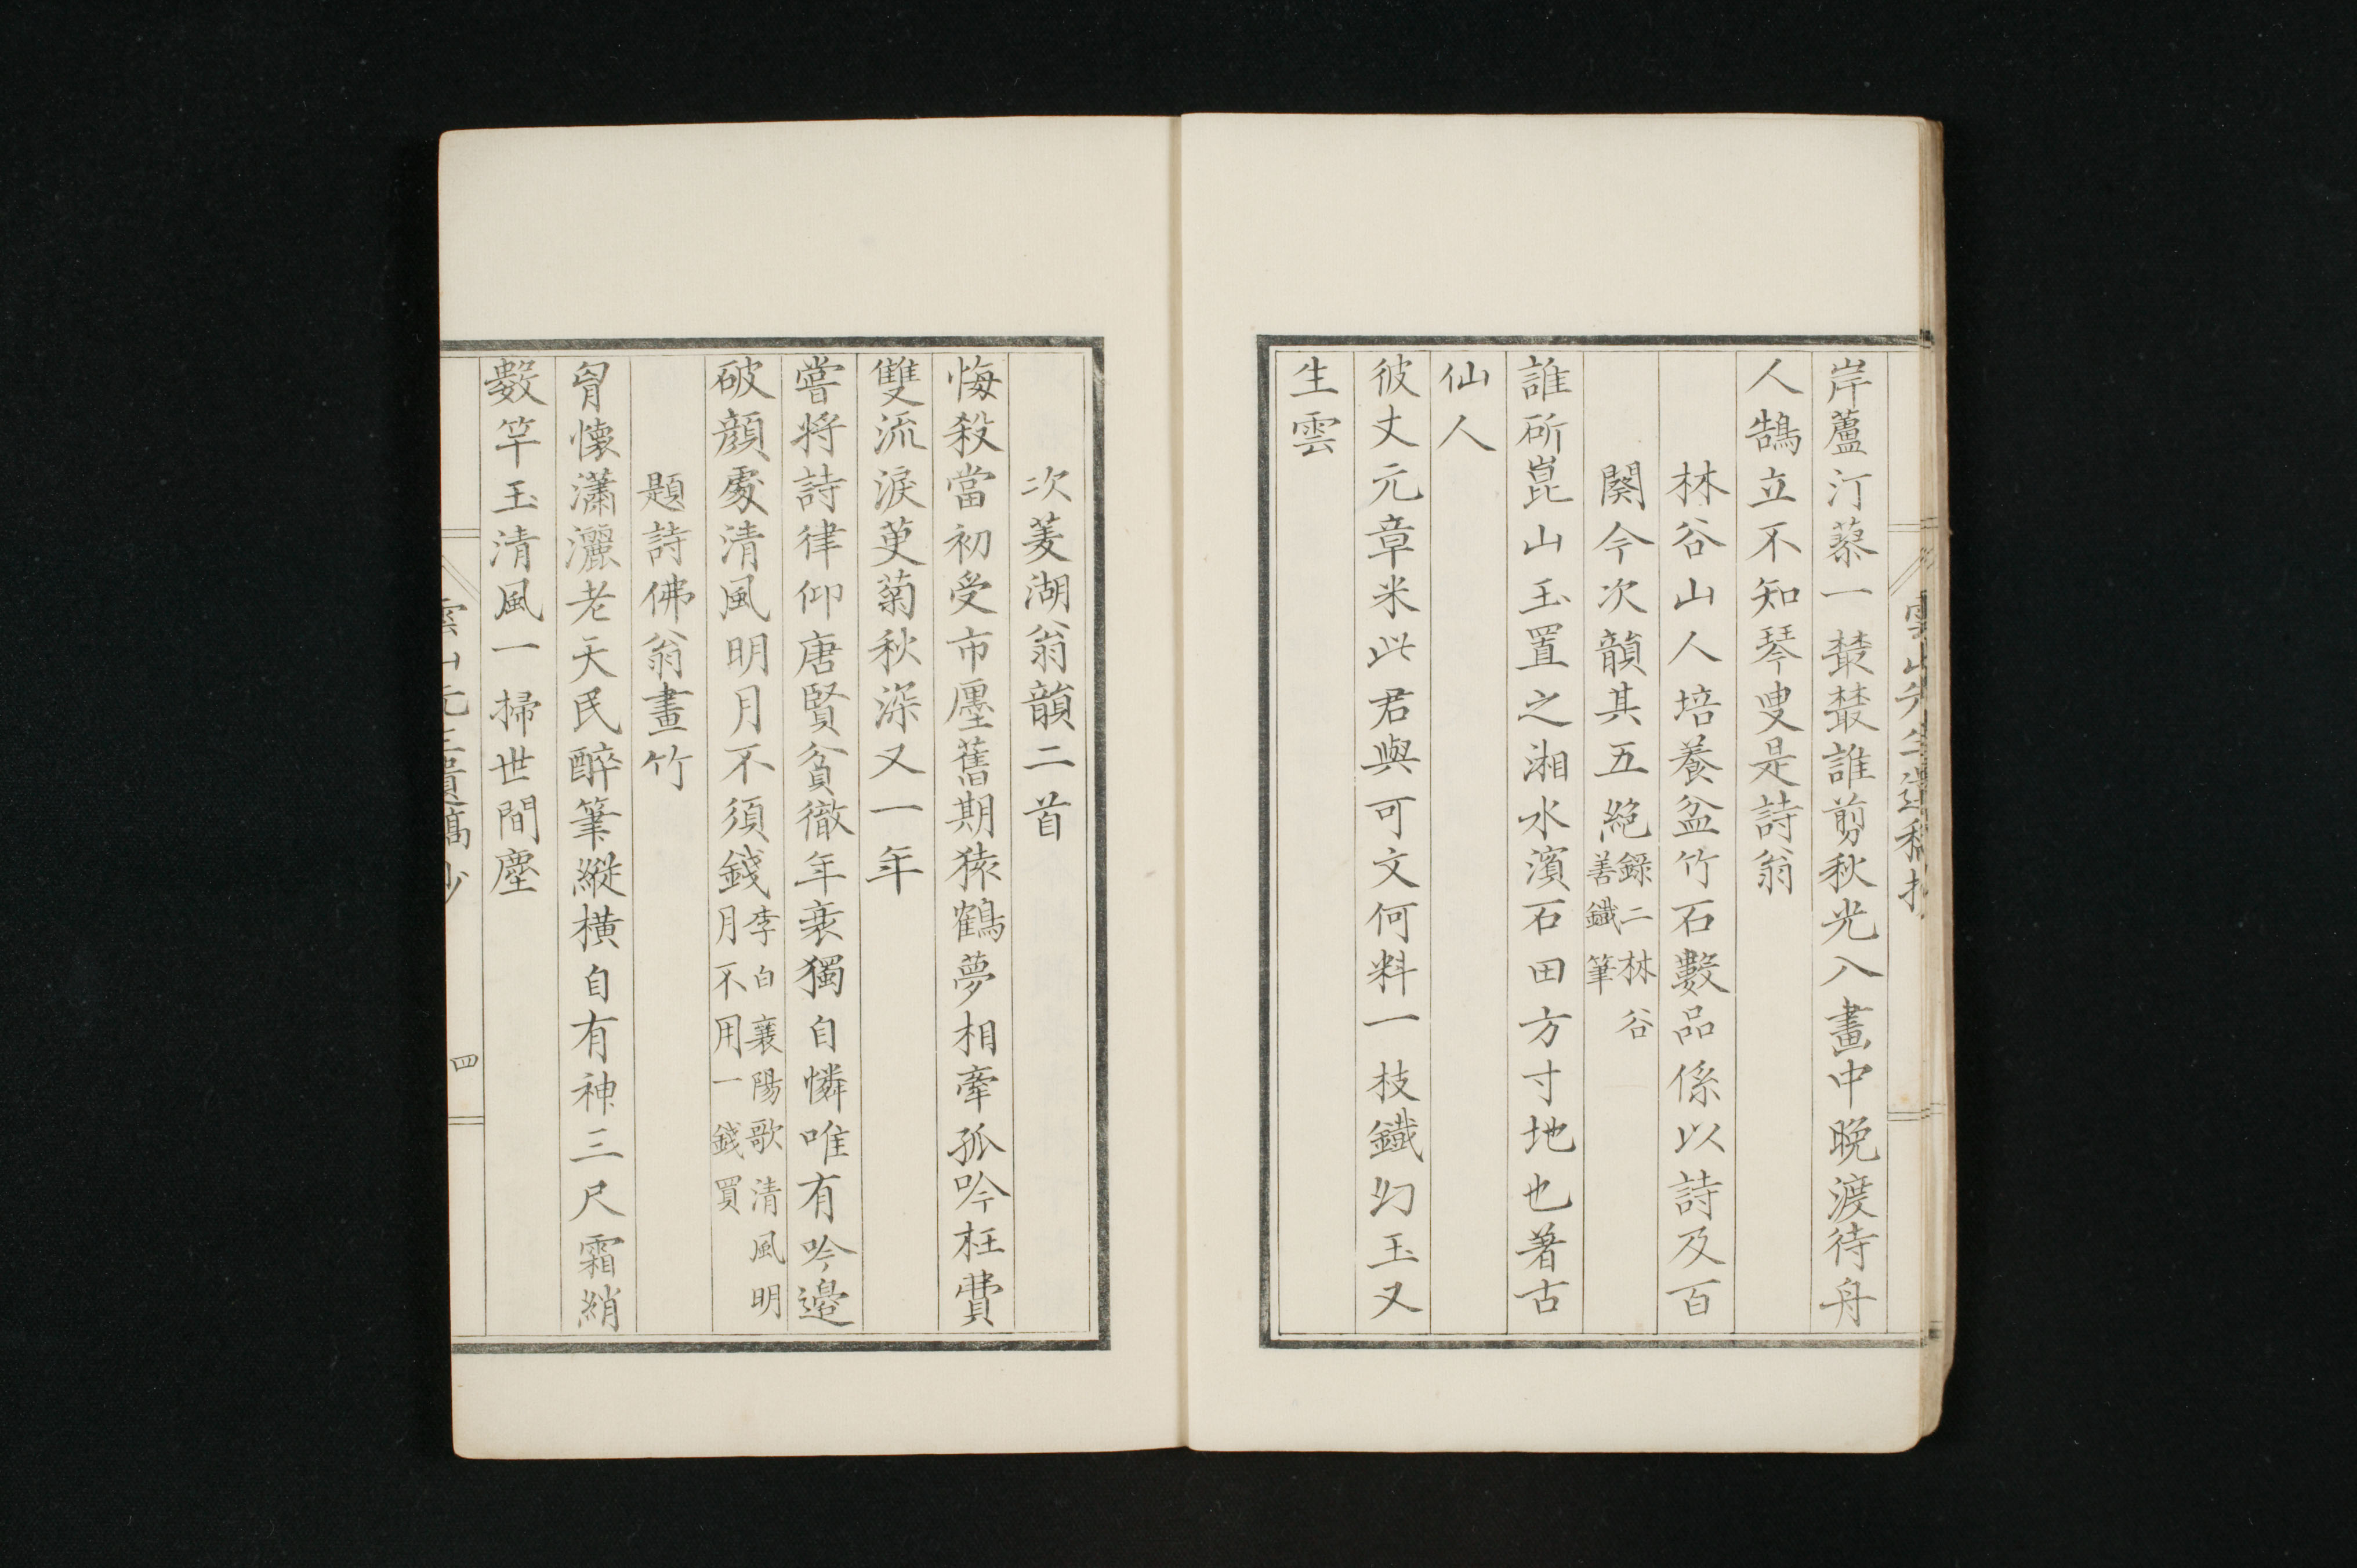 岸蘆汀蓼一叢叢誰剪秋光入畫中晚渡待舟
人鵠立不知琴叟是詩翁
林谷山人培養盆竹石數品係以詩及百
闋今次韻其五絶錄二林谷
善鐵筆
誰所崑山玉置之湘水濱石田方寸地也著古
仙人
彼丈元章米此君與可文何料一枝鐵幻玉又
生雲
次菱湖翁韻二首
悔殺當初受市廛舊期猿鶴夢相牽孤吟枉費
雙流淚更菊秋深又一年
嘗將詩律仰唐賢貧徹年衰獨自憐唯有吟邊
破顔處清風明月不須錢李白襄陽歌清風明
月不用一錢買
題詩佛翁畫竹
胷懷瀟灑老天民醉筆縱橫自有神三尺霜綃
數竿玉清風一掃世間塵
四